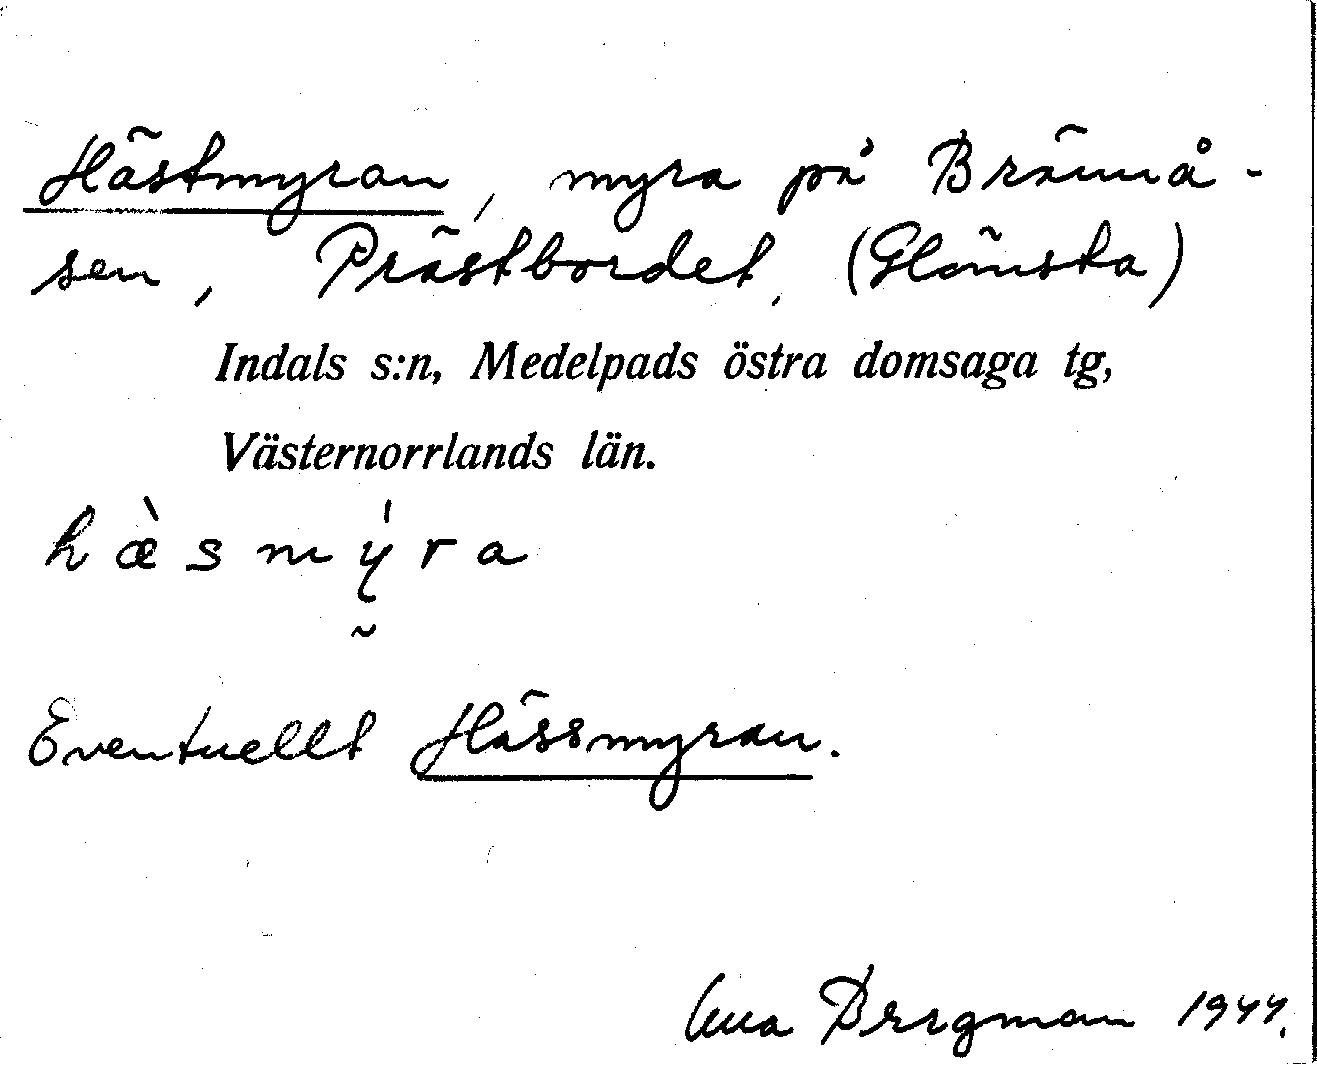 Hästmyran, myra på Brännå-
sen, Prästbordet, (Glämsta)
Indals s:n, Medelpads östra domsaga tg,
Västernorrlands län.
hæ̀smy̍ra
Eventuellt Hässmyran.
Bergman 1944.